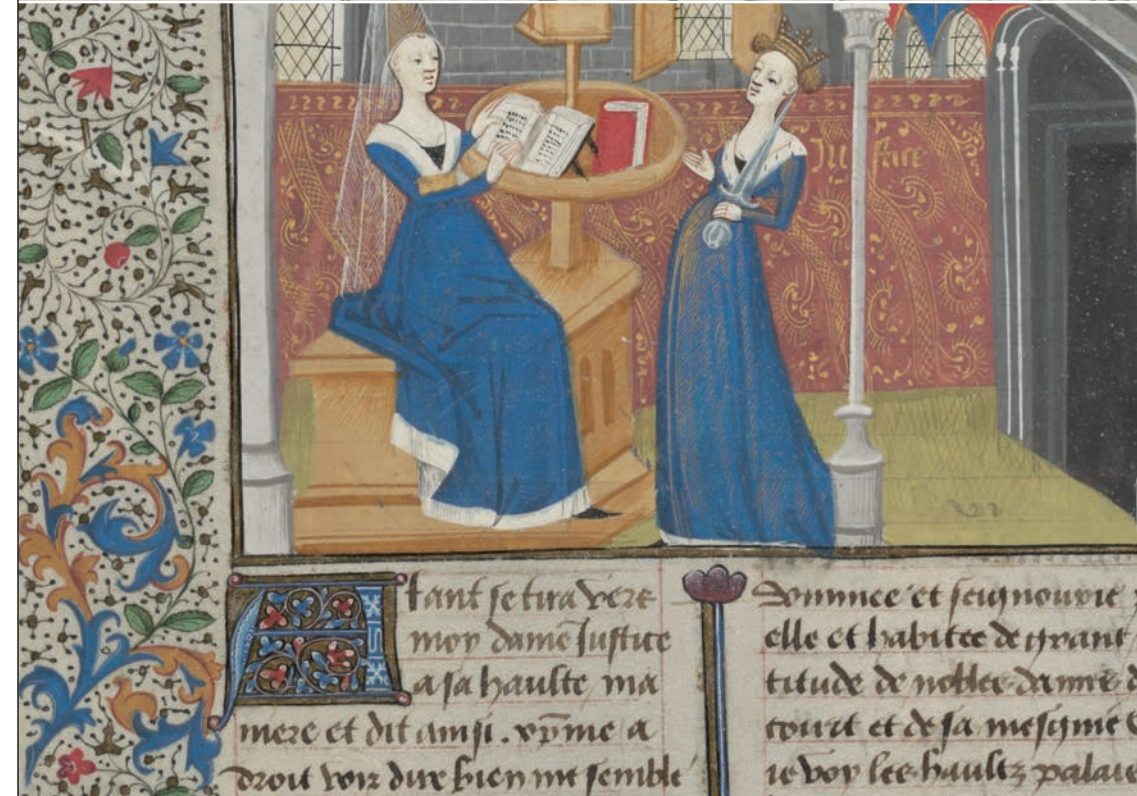 Justice
Atant se tira vers
moy dame Justice
a sa haulte ma
niere et dit ainsi. xp̄ine a
droit voir dire bien me semble
dominee et seignourie
elle et habitee de grant
titude de nobles dames d
court et de sa mesgnie
ie voy les haultz palais